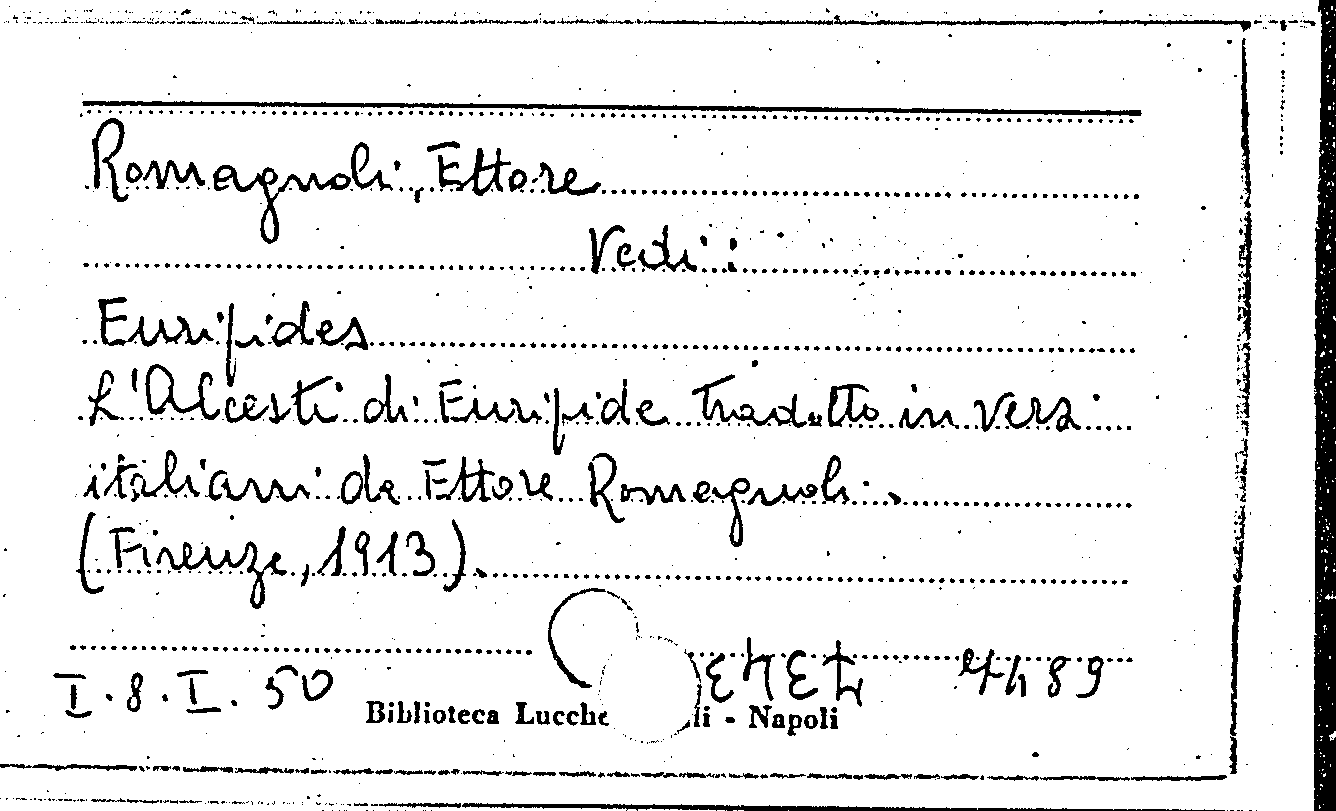 Romagnoli, Ettore
Vedi:
Euripides
L'Alcesti di Euripide tradotto in versi
italiani da Ettore Romagnoli.
(Firenze, 1913).
I.8.I.50
Biblioteca Lucche li - Napoli